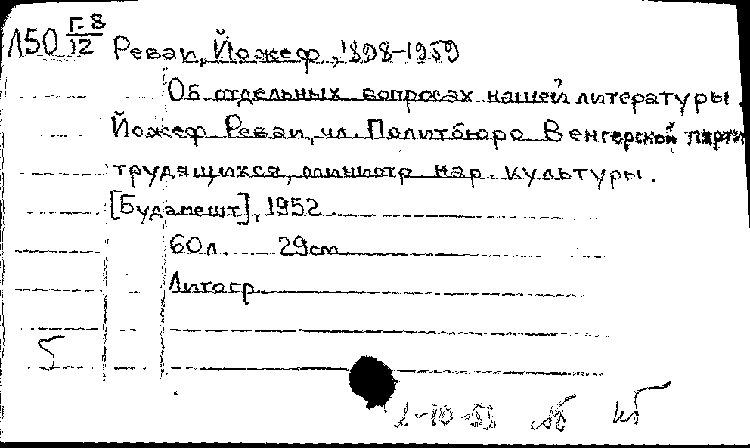 Л50 Г-8/12 Реваи, Йожеф, 1898-1959
Об отдельных вопросах нашей литературы.
Йожеф Реваи, чл. Политбюро Венгерской парти
трудящихся, министр нар. культуры.
[Будапешт], 1952
60л. 29см
Литогр.
5